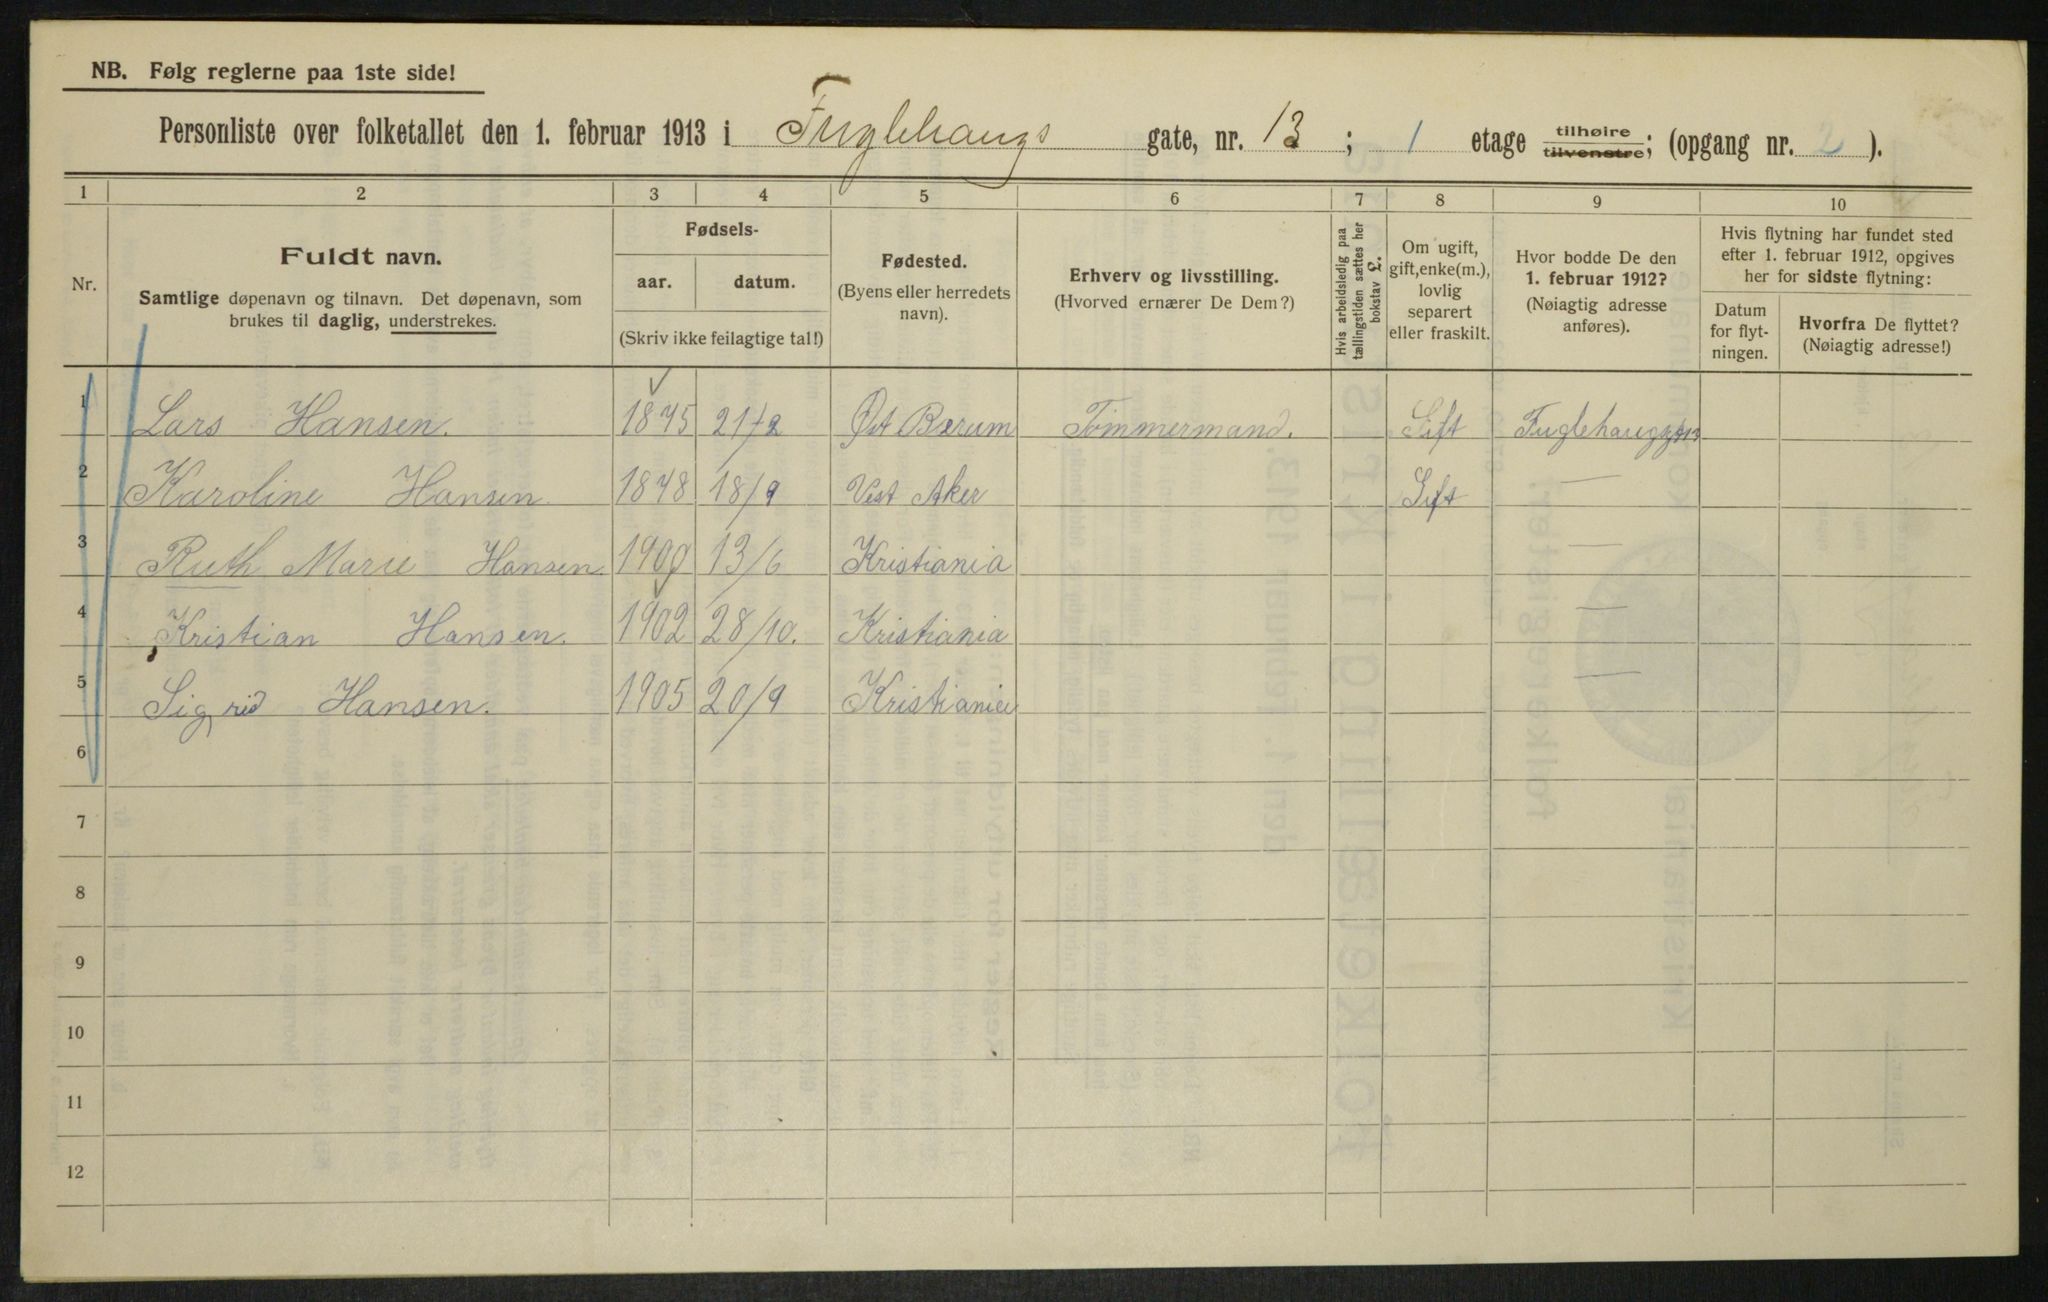 NB. Følg reglerne paa 1ste side!
Personliste over folketallet den 1. februar 1913 i Fuglehaugs gate, nr. 13 ; 1 etage tilhøire tilvenstre; (opgang nr. 2 ).
1 2 3 4 5 6 7 8 9 10
Nr.
Fuldt navn.
Samtlige døpenavn og tilnavn. Det døpenavn, som
brukes til daglig, understrekes.
Fødsels-
aar. datum.
(Skriv ikke feilagtige tal!)
Fødested.
(Byens eller herredets
navn).
Erhverv og livsstilling.
(Hvorved ernærer De Dem?)
Hvis arbeidsledig paa
tællingstiden sættes her
bokstav L.
Om ugift,
gift, enke(m.),
lovlig
separert
eller fraskilt.
Hvor bodde De den
1. februar 1912?
(Nøiagtig adresse
anføres).
Hvis flytning har fundet sted
efter 1. februar 1912, opgives
her for sidste flytning:
Datum
for flyt-
ningen.
Hvorfra De flyttet?
(Nøiagtig adresse!)
1 Lars Hansen. 1845 21/2 Øst Bærum Tømmermand. Gift Fuglehauggt 13
2 Karoline Hansen 1848 18/9 Vest Aker Gift —
3 Ruth Marie Hansen. 1900 13/6 Kristiania —
4 Kristian Hansen. 1902 28/10. Kristiania —
5 Sigrid Hansen. 1905 20/9 Kristiania —
6
7
8
9
10
11
12